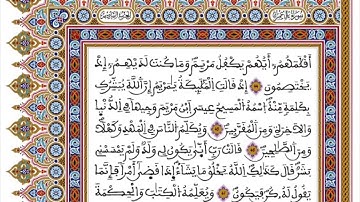 سُورَةُ آلِ عِمْرَانَ
أَقْلَٰمَهُمْ أَيُّهُمْ يَكْفُلُ مَرْيَمَ وَمَا كُنتَ لَدَيْهِمْ إِذْ
يَخْتَصِمُونَ إِذْ قَالَتِ ٱلْمَلَٰٓئِكَةُ يَٰمَرْيَمُ إِنَّ ٱللَّهَ يُبَشِّرُكِ
بِكَلِمَةٍ مِّنْهُ ٱسْمُهُ ٱلْمَسِيحُ عِيسَى ٱبْنُ مَرْيَمَ وَجِيهًا فِي ٱلدُّنْيَا
وَٱلْءَاخِرَةِ وَمِنَ ٱلْمُقَرَّبِينَ وَيُكَلِّمُ ٱلنَّاسَ فِي ٱلْمَهْدِ وَكَهْلًا
وَمِنَ ٱلصَّٰلِحِينَ قَالَتْ رَبِّ أَنَّىٰ يَكُونُ لِي وَلَدٌ وَلَمْ يَمْسَسْنِي
بَشَرٌ قَالَ كَذَٰلِكِ ٱللَّهُ يَخْلُقُ مَا يَشَآءُ إِذَا قَضَىٰٓ أَمْرًا فَإِنَّمَا
يَقُولُ لَهُۥ كُن فَيَكُونُ وَيُعَلِّمُهُ ٱلْكِتَٰبَ وَٱلْحِكْمَةَ